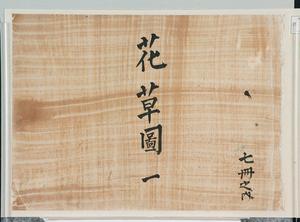 花草圖 一
七冊之内